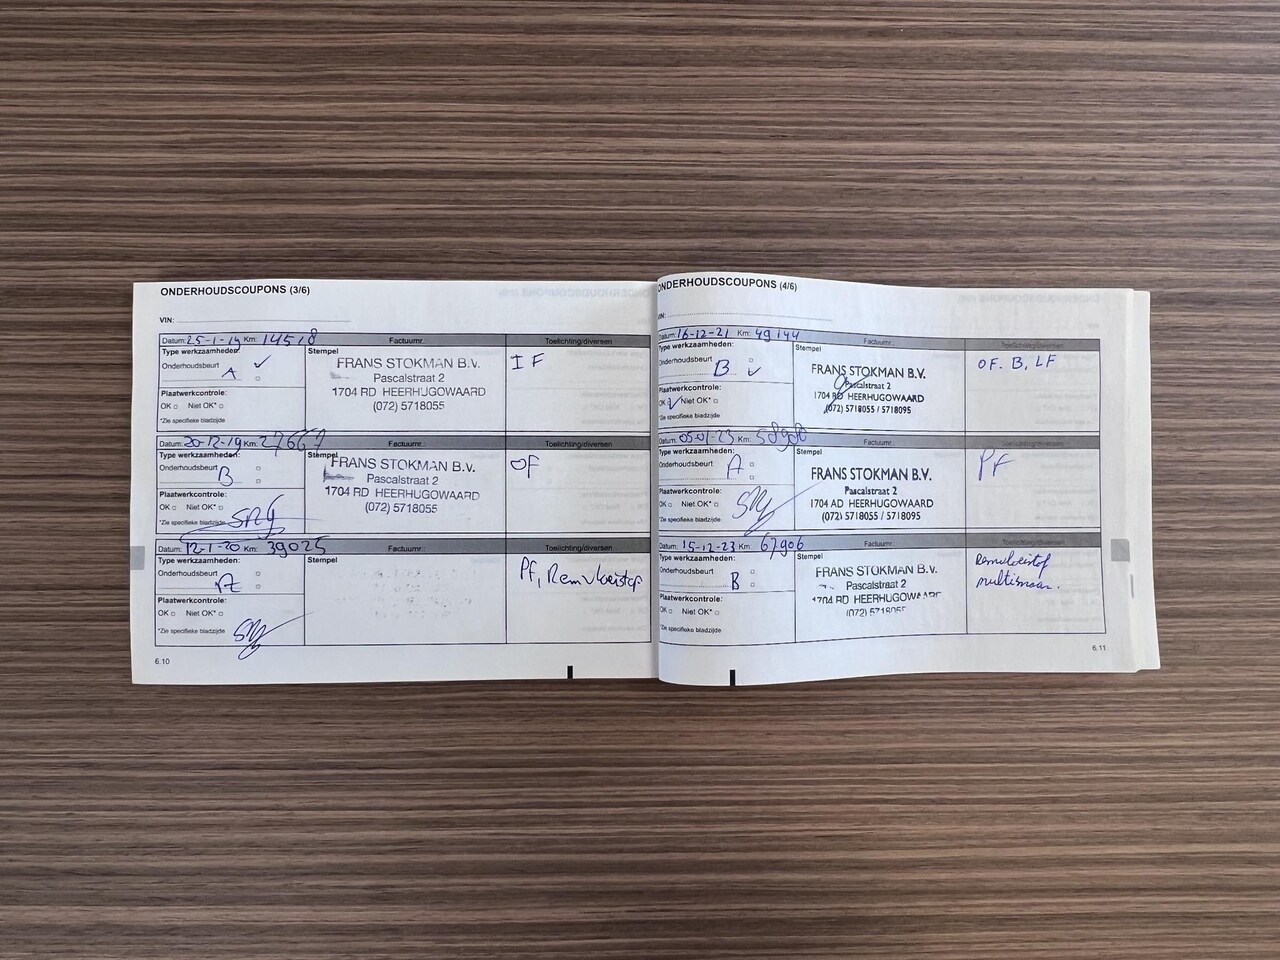 ONDERHOUDSCOUPONS (3/6)
VIN:
Datum: 25-1-19 Km: 14518 Factuurnr.: Toelichting/diversen
Type werkzaamheden: Stempel
Onderhoudsbeurt ✓
A
FRANS STOKMAN B.V.
Pascalstraat 2
1704 RD HEERHUGOWAARD
(072) 5718055
I F
Plaatwerkcontrole:
OK Niet OK*
*Zie specifieke bladzijde
Datum: 20-12-19 Km: 27667 Factuurnr.: Toelichting/diversen
Type werkzaamheden: Stempel
Onderhoudsbeurt
B
FRANS STOKMAN B.V.
Pascalstraat 2
1704 RD HEERHUGOWAARD
(072) 5718055
OF
Plaatwerkcontrole:
OK Niet OK*
*Zie specifieke bladzijde
Datum: 12-1-20 Km: 39025 Factuurnr.: Toelichting/diversen
Type werkzaamheden: Stempel
Onderhoudsbeurt
A
Pf, Remvloeistof
Plaatwerkcontrole:
OK Niet OK*
*Zie specifieke bladzijde
6.10
ONDERHOUDSCOUPONS (4/6)
VIN:
Datum: 16-12-21 Km: 49144 Factuurnr.: Toelichting/diversen
Type werkzaamheden: Stempel
Onderhoudsbeurt
B ✓
FRANS STOKMAN B.V.
Pascalstraat 2
1704 RD HEERHUGOWAARD
(072) 5718055 / 5718095
OF. B, LF
Plaatwerkcontrole:
OK ✓ Niet OK*
*Zie specifieke bladzijde
Datum: 05-01-23 Km: Factuurnr.: Toelichting/diversen
Type werkzaamheden: Stempel
Onderhoudsbeurt A
FRANS STOKMAN B.V.
Pascalstraat 2
1704 AD HEERHUGOWAARD
(072) 5718055 / 5718095
PF
Plaatwerkcontrole:
OK Niet OK*
*Zie specifieke bladzijde
Datum: 15-12-23 Km: 67906 Factuurnr.: Toelichting/diversen
Type werkzaamheden: Stempel
Onderhoudsbeurt
B
FRANS STOKMAN B.V.
Pascalstraat 2
1704 RD HEERHUGOWAARD
(072) 5718055
Remvloeistof
Plaatwerkcontrole:
OK Niet OK*
*Zie specifieke bladzijde
6.11